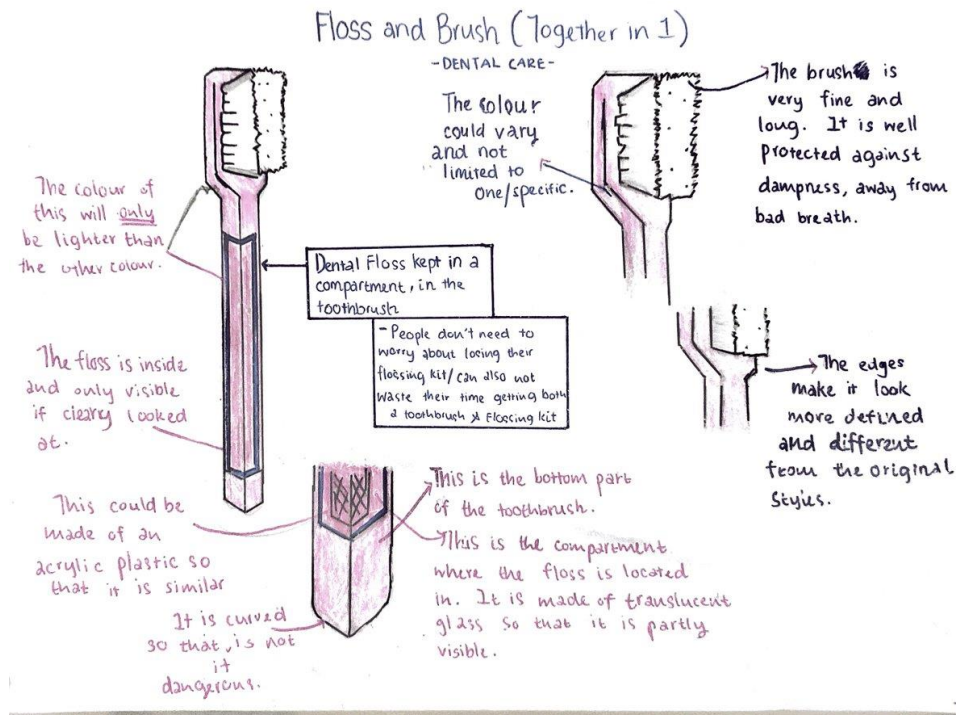 Floss and Brush (Together in 1)
- DENTAL CARE -
The colour
could vary
and not
limited to
one/specific.
The brush is
very fine and
long. It is well
protected against
dampness, away from
bad breath.
The colour of
this will only
be lighter than
the other colour.
Dental Floss kept in a
compartment, in the
toothbrush
- People don't need to
worry about losing their
flossing kit/can also not
waste their time getting both
a toothbrush & Flossing kit
The edges
make it look
more defined
and different
from the original
styles.
The floss is inside
and only visible
if cleary looked
at.
This could be
made of an
acrylic plastic so
that it is similar
This is the bottom part
of the toothbrush.
This is the compartment
where the floss is located
in. It is made of translucent
glass so that it is partly
visible.
It is curved
so that, is not
it
dangerous.